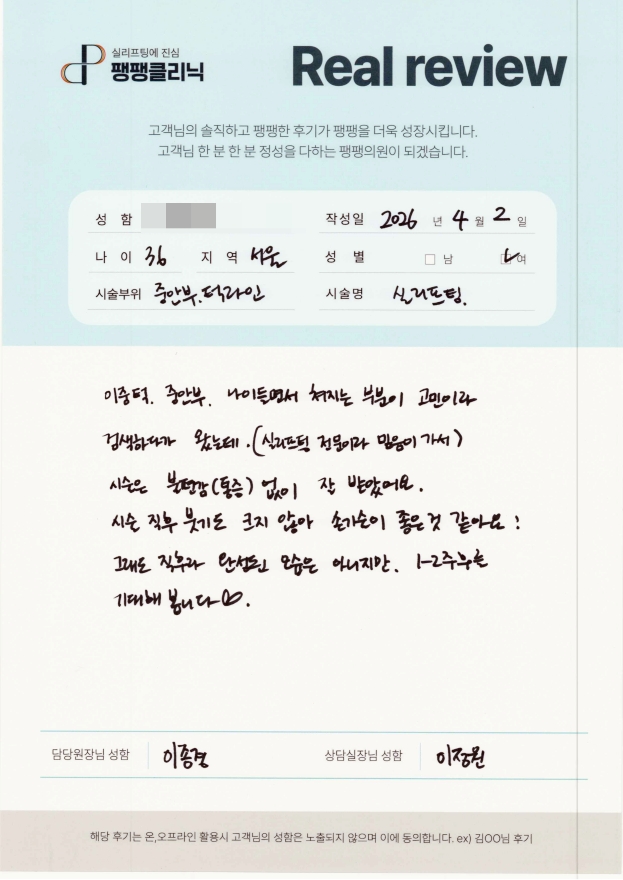 실리프팅에 진심
팽팽클리닉
Real review
고객님의 솔직하고 팽팽한 후기가 팽팽을 더욱 성장시킵니다.
고객님 한 분 한 분 정성을 다하는 팽팽의원이 되겠습니다.
성 함
작성일 2026 년 4 월 2 일
나 이 36 지 역 서울
성 별 남 여
시술부위 중안부.턱라인
시술명 실리프팅.
이중턱. 중안부. 나이들면서 쳐지는 부분이 고민이라
검색하다가 왔는데.(실리프팅 전문이라 믿음이가서)
시술은 불편감(통증) 없이 잘 받았어요.
시술 직후 붓기도 크지 않아 손기술이 좋은것 같아요!
그래도 직후라 완성된 모습은 아니지만. 1-2주후를
기대해 봅니다.
담당원장님 성함 이종결
상담실장님 성함 이정원
해당 후기는 온,오프라인 활용시 고객님의 성함은 노출되지 않으며 이에 동의합니다. ex) 김OO님 후기